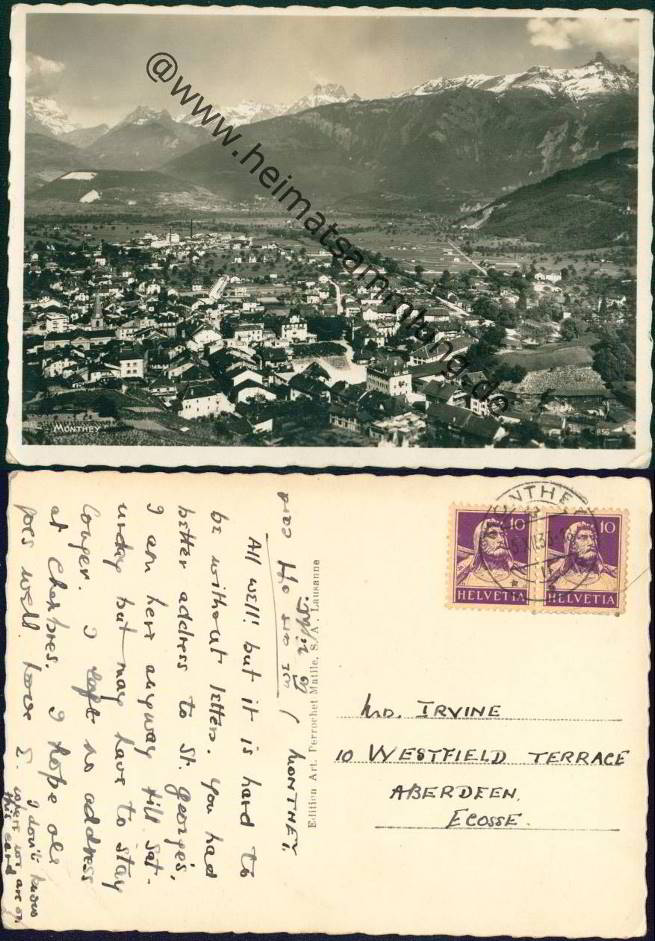 @www.heimatsammlung.de
MONTHEY
MONTHEY.
All well! but it is hard to
be without letters. You had
better address to St. George's,
I am here anyway till Sat-
urday but may have to stay
longer. I left no address
at Chexbres. I hope all
goes well love I.
I don't know
where we are on
this card
Edition Art. Perrochet Matile, S. A., Lausanne
10 10
HELVETIA HELVETIA
Mrs. IRVINE
10 WESTFIELD TERRACE
ABERDEEN.
ECOSSE.